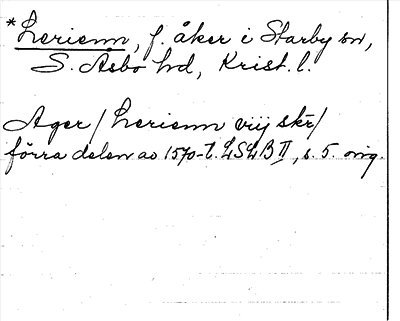 *Lerienn, f. åker i Starby sn,
S. Åsbo hd, Krist. l.
Ager / Lerienn vij skr/
förra delen av 1570-t. LSLB II, s. 5. orig.